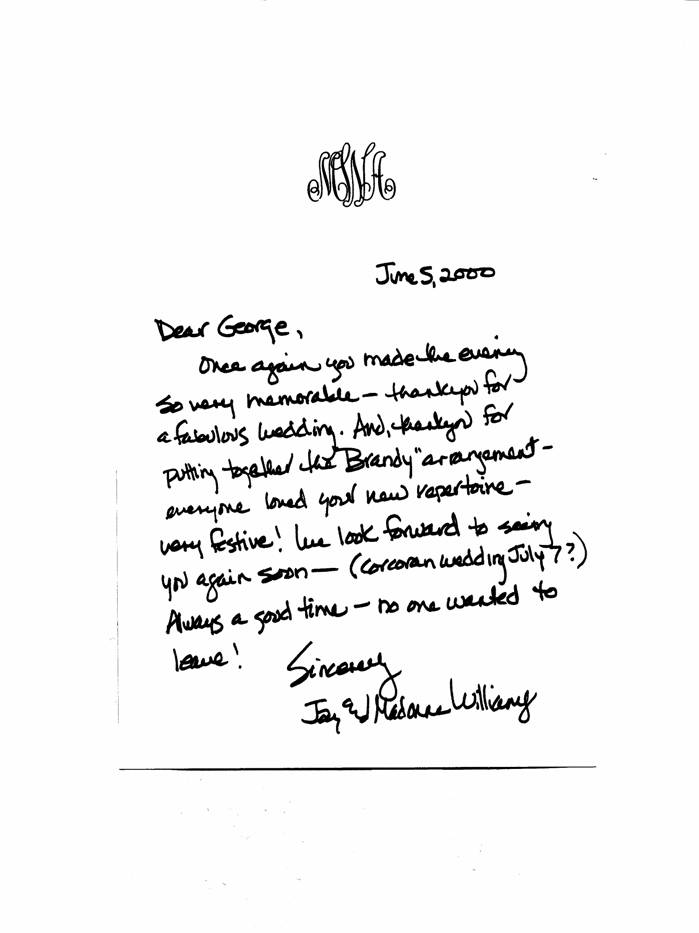 June 5, 2000
Dear George,
Once again you made the evening
so very memorable — thankyou for
a fabulous wedding. And, thankyou for
putting together the "Brandy" arrangement —
everyone loved your new repertoire —
very festive! We look forward to seeing
you again soon — (Corcoran wedding July 7?)
Always a good time — no one wanted to
leave!
Sincerely
Jay and Madonna Williams